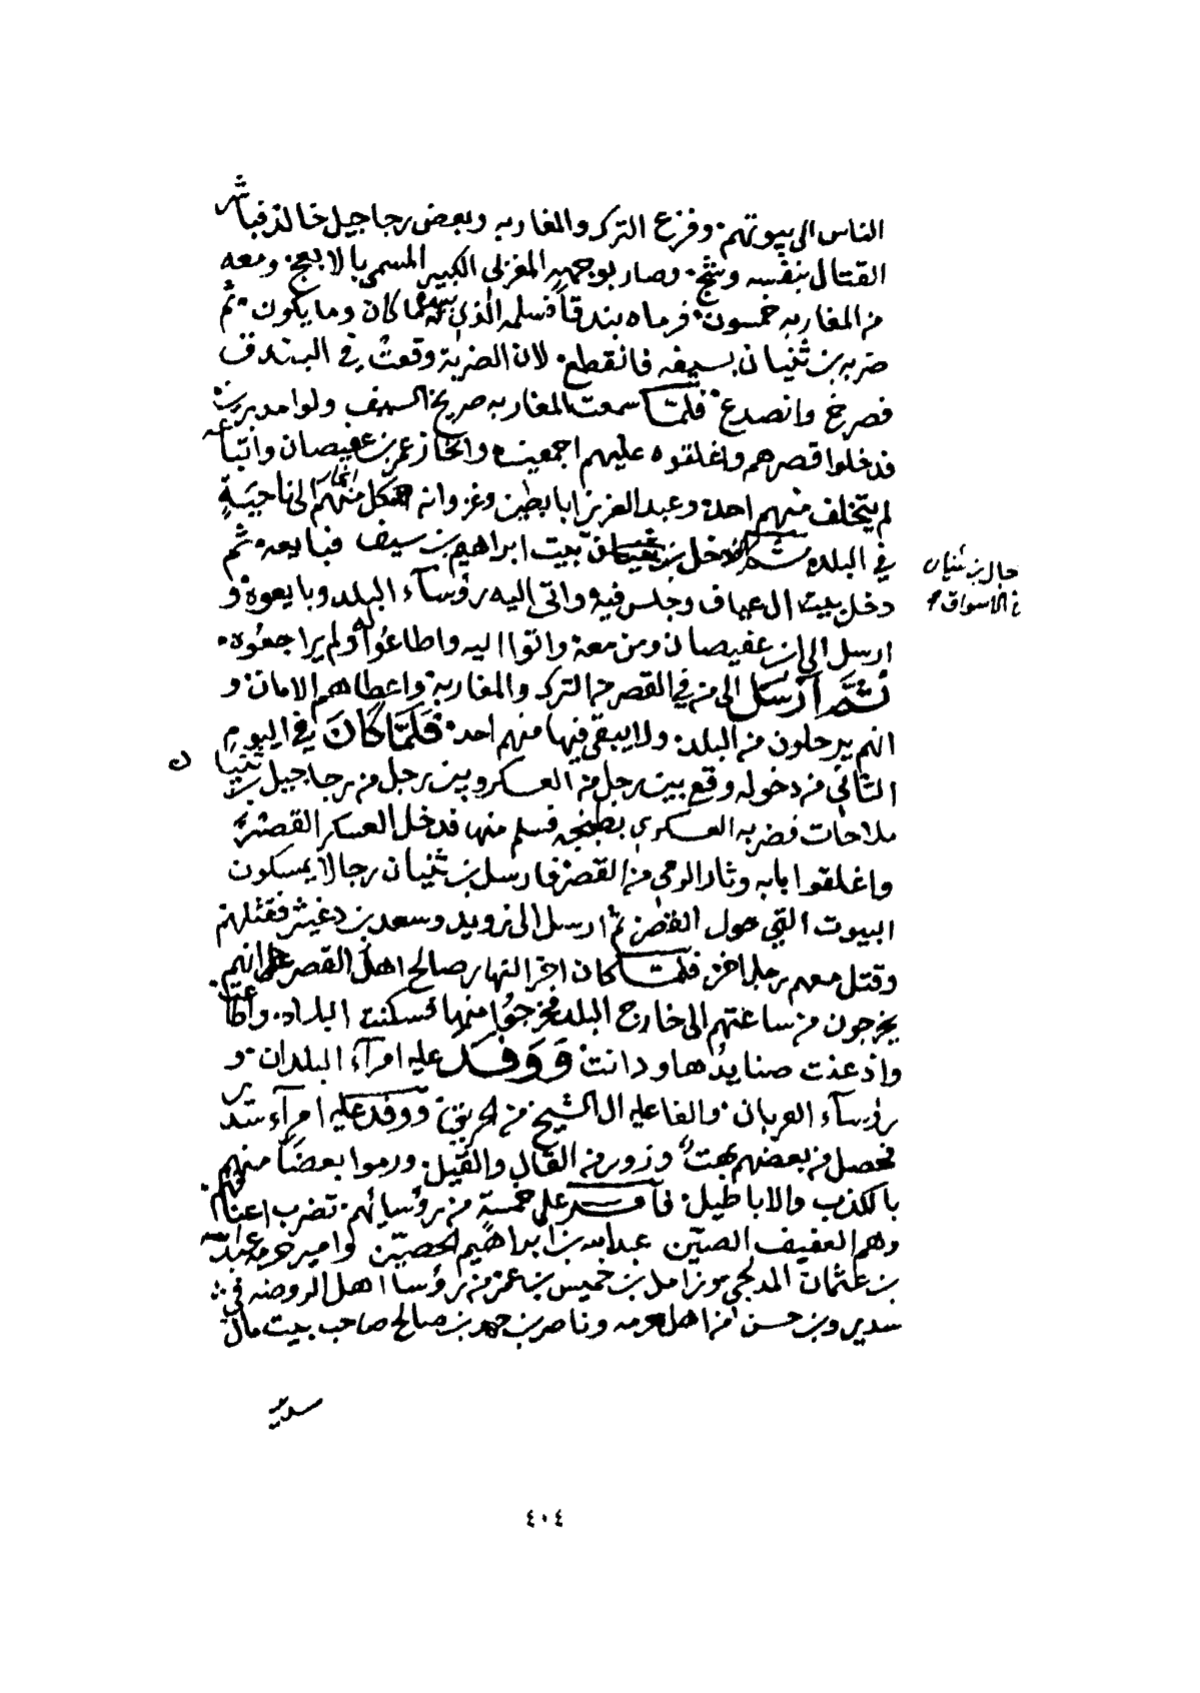 الناس الى بيوتهم وفزع الترك والمغاربه وبعض رجاجيل خالد فباشر
القتال بنفسه وشج وصار بوجهه المغربي الكبير المسمى بالابعج ومعه
من المغاربه خمسون فرماه بندقا فسلمه الذي يعلم ما كان وما يكون ثم
ضربه بن ثنيان بسيفه فانقطع لان الضربة وقعت في البندق
فصرخ وانصدع فلما سمعت المغاربه صريخ السيف ولوا مدبرين
فدخلوا قصرهم واغلقوه عليهم اجمعين وانحاز عمر بن عفيصان واتباعه
لم يتخلف منهم احد وعبد العزيز ابا بطين وغزوانه كل منهم انحاز الى ناحية
في البلد ثم دخل بيت ابراهيم بن سيف فبايعه ثم
جال بن ثنيان
في الاسواق
دخل بيت ال عياف وجلس فيه واتى اليه رؤسآء البلد وبايعوه و
ارسل الى بن عفيصان ومن معه واتوا اليه واطاعوا له ولم يراجعوه
ثم ارسل الى من في القصر من الترك والمغاربة واعطاهم الامان و
انهم يرحلون من البلد ولا يبقى فيها منهم احد فلما كان في اليوم
الثاني من دخوله وقع بين رجل من العسكر وبين رجل من رجاجيل بن ثنيان
ملاحات فضربه العسكري بطبنجه فسلم منها فدخل العسكر القصر
واغلقوا بابه وثار الرمي من القصر فارسل بن ثنيان رجالا يمسكون
البيوت التي حول القصر ثم ارسل الى زويد وسعد بن دغيثر فقتلهم
وقتل معهم رجل اخر فلما كان اخر النهار صالح اهل القصر على انهم
يخرجون من ساعتهم الى خارج البلد فخرجوا منها فسكنت البلاد واطاعت
واذعنت صناديدها ودانت ووفد عليه امرآء البلدان و
رؤسآء العربان والفا عليه ال الشيخ من الحريق ووفد عليه امرآء سدير
فحصل من بعضهم بهت وزور من القال والقيل ورموا بعضا منهم
بالكذب والاباطيل فامر على خمسة من رؤسائهم تضرب اعناقهم
وهم العفيف الصين عبدالله بن ابراهيم الحصين وامير حرمه عبدالله
بن عثمان المدلجي وزامل بن خميس بن عمر من رؤسا اهل الروضه في
سدير وبن حسن من اهل حرمه وناصر بن حمد بن صالح صاحب بيت مال
سدير
٤٠٤